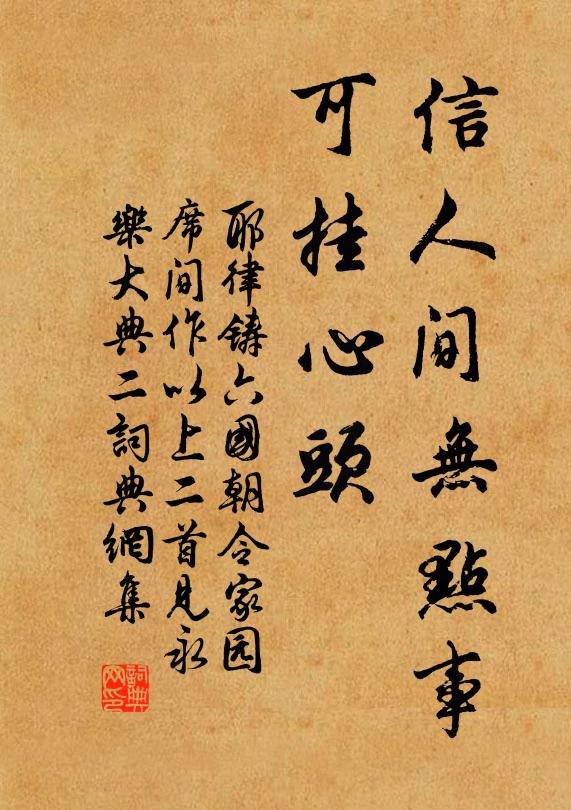 信人間無點事
可挂心頭
耶律鑄六國朝令家园
席间作以上二首見永
樂大典二詞典網集
詞典网印